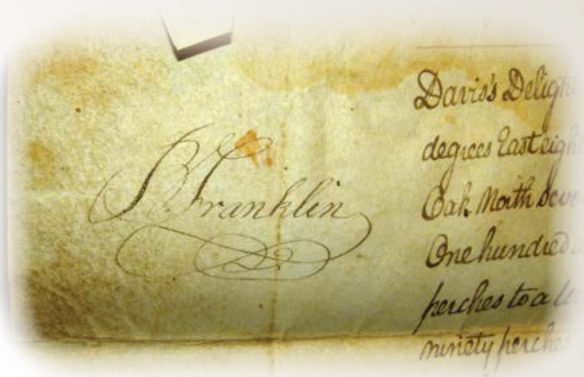 B Franklin
Davis's Delight
degrees East eigh
Oak North Seve
One hundred a
perches to a
ninety perches